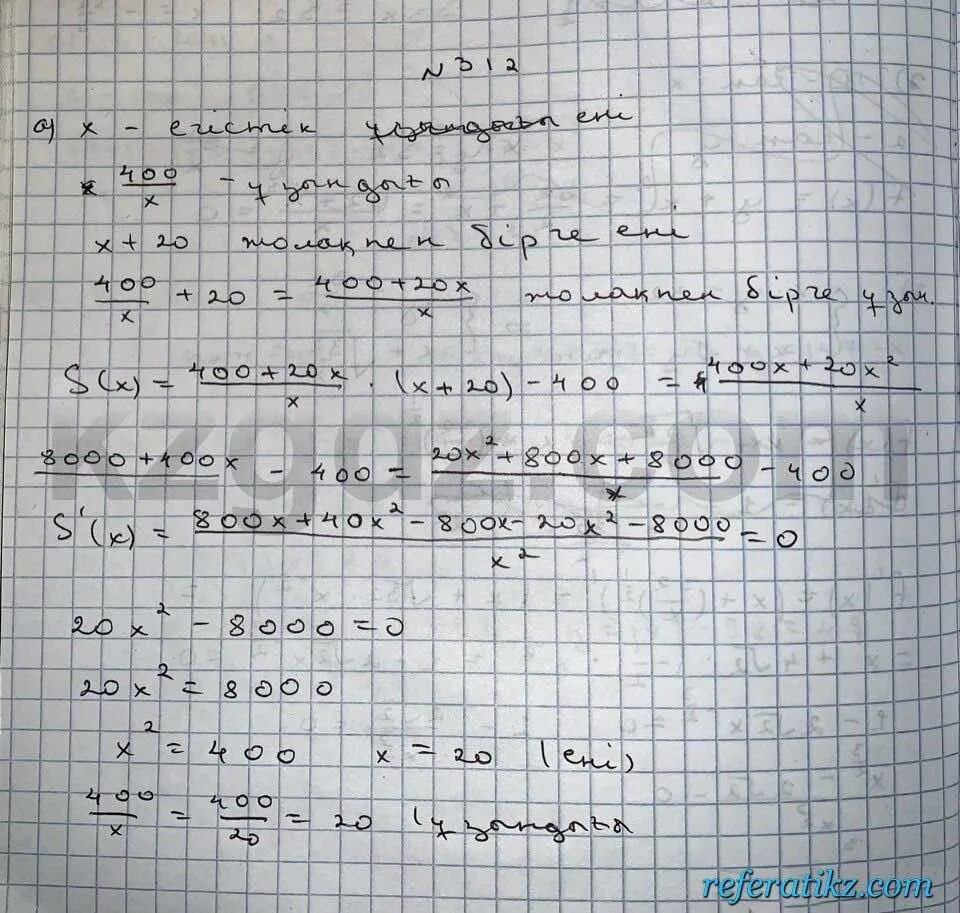 N 312
а) x - егістек ені
400/x - ұзындығы
x + 20 жолақпен бірге ені
400/x + 20 = (400+20x)/x жолақпен бірге ұзын.
S(x) = (400+20x)/x · (x+20) - 400 = (400x+20x²)/x
(8000+400x) - 400 = (20x²+800x+8000)/x - 400
S'(x) = (800x+40x²-800x-20x²-8000)/x² = 0
20x² - 8000 = 0
20x² = 8000
x² = 400 x = 20 (ені)
400/x = 400/20 = 20 (ұзындығы
kzgdz.com
referatikz.com